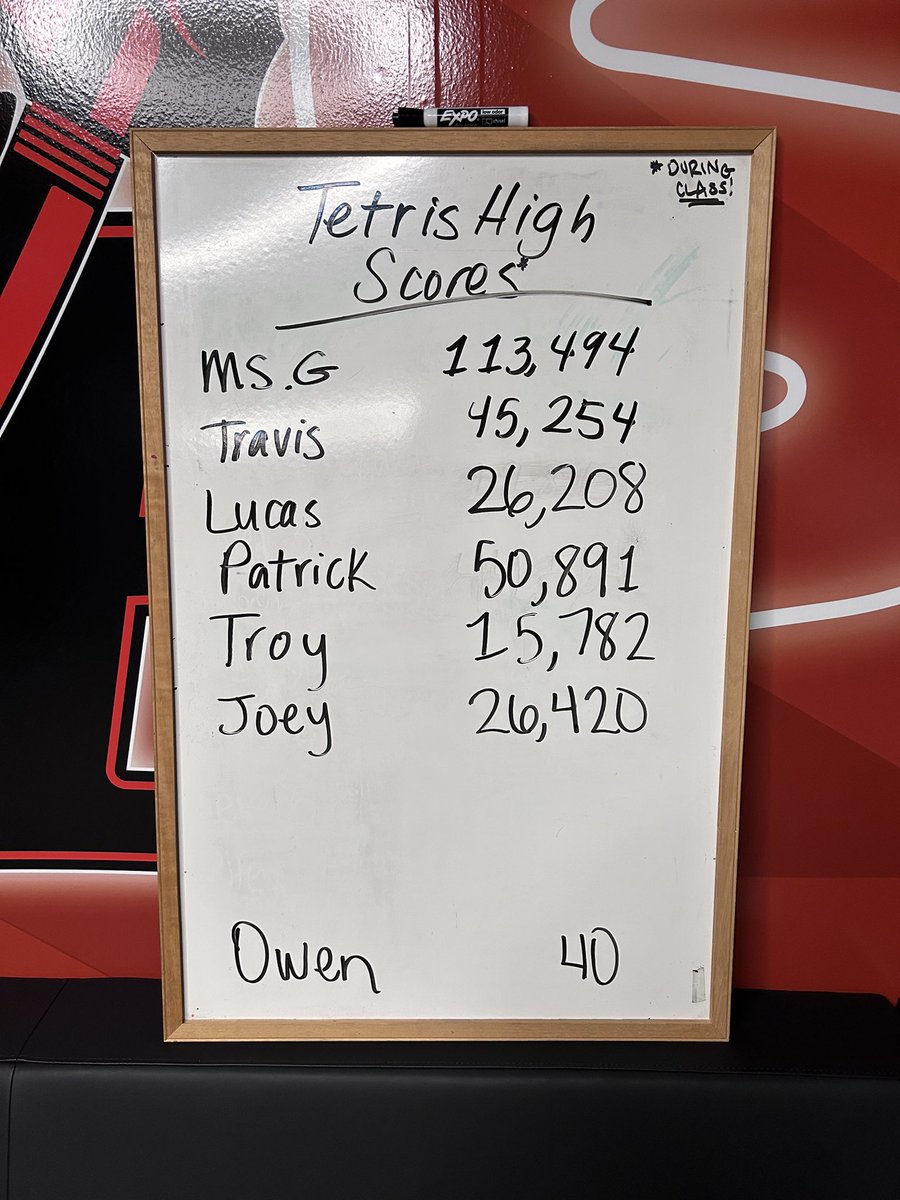 EXPO low odor
* DURING
CLASS!
Tetris High
Scores*
MS. G 113,494
Travis 45,254
Lucas 26,208
Patrick 50,891
Troy 15,782
Joey 26,420
Owen 40